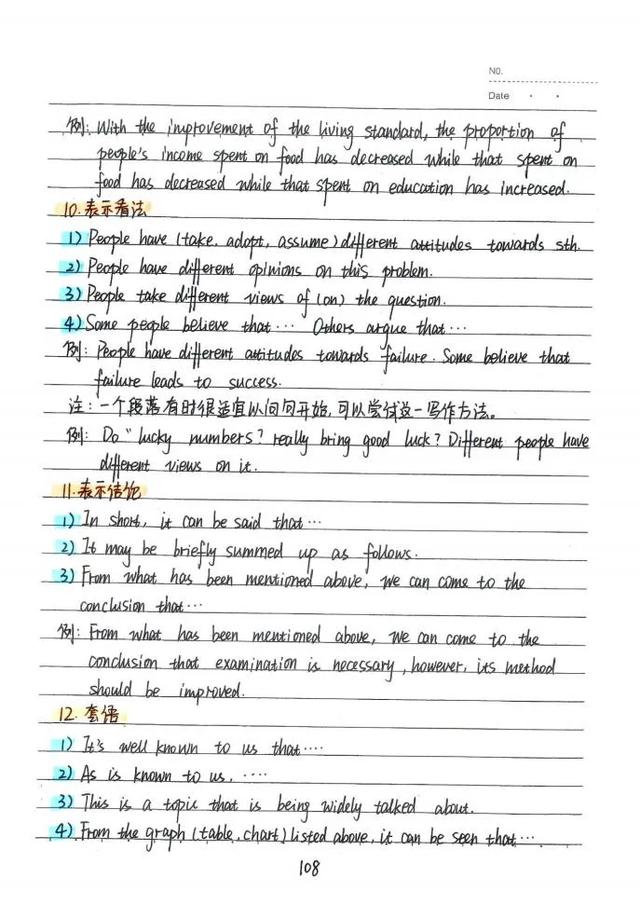 NO.
Date
例: With the improvement of the living standard, the proportion of
people's income spent on food has decreased while that spent on
food has decreased while that spent on education has increased.
10. 表示看法
1) People have (take, adopt, assume) different attitudes towards sth.
2) People have different opinions on this problem.
3) People take different views of (on) the question.
4) Some people believe that… Others argue that…
例: People have different attitudes towards failure. Some believe that
failure leads to success.
注: 一个段落有时很适宜以问句开始,可以尝试这一写作方法。
例: Do "lucky numbers? really bring good luck? Different people have
different views on it.
11. 表示结论
1) In short, it can be said that…
2) It may be briefly summed up as follows.
3) From what has been mentioned above, we can come to the
conclusion that…
例: From what has been mentioned above, we can come to the
conclusion that examination is necessary, however, its method
should be improved.
12. 套语
1) It's well known to us that….
2) As is known to us, ….
3) This is a topic that is being widely talked about.
4) From the graph (table, chart) listed above, it can be seen that…
108